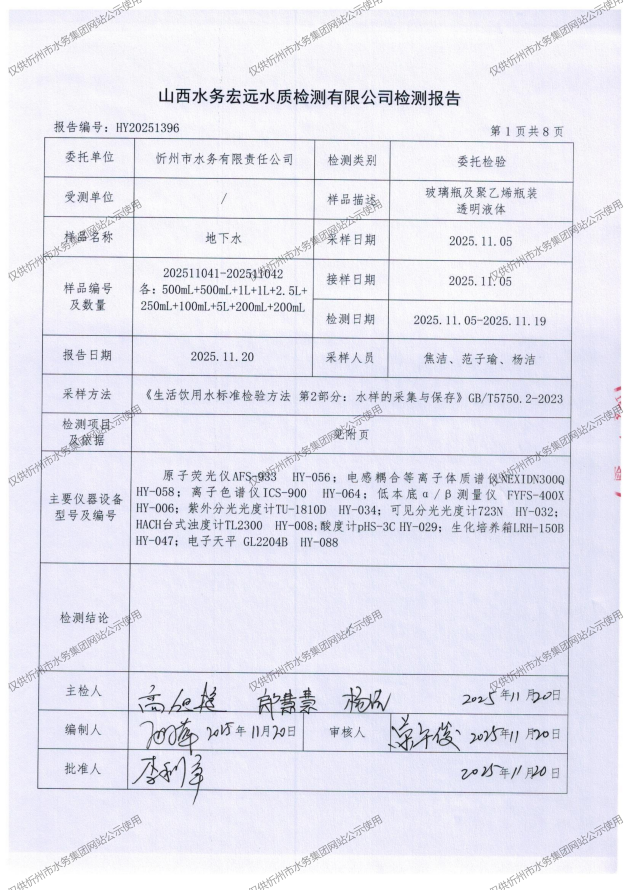 山西水务宏远水质检测有限公司检测报告
报告编号：HY20251396
第 1 页共 8 页
委托单位
忻州市水务有限责任公司
检测类别
委托检验
受测单位
/
样品描述
玻璃瓶及聚乙烯瓶装
透明液体
样品名称
地下水
采样日期
2025.11.05
样品编号
及数量
202511041-202511042
各：500mL+500mL+1L+1L+2.5L+
250mL+100mL+5L+200mL+200mL
接样日期
2025.11.05
检测日期
2025.11.05-2025.11.19
报告日期
2025.11.20
采样人员
焦洁、范子瑜、杨洁
采样方法
《生活饮用水标准检验方法 第2部分：水样的采集与保存》GB/T5750.2-2023
检测项目
及依据
见附页
主要仪器设备
型号及编号
原子荧光仪AFS-933 HY-056；电感耦合等离子体质谱仪NEXIDN300Q
HY-058；离子色谱仪ICS-900 HY-064；低本底α/β测量仪 FYFS-400X
HY-006；紫外分光光度计TU-1810D HY-034；可见分光光度计723N HY-032；
HACH台式浊度计TL2300 HY-008;酸度计pHS-3C HY-029；生化培养箱LRH-150B
HY-047；电子天平 GL2204B HY-088
检测结论
/
主检人
2025年11月20日
编制人
2025年11月20日
审核人
2025年11月20日
批准人
李利军
2025年11月20日
仅供忻州市水务集团网站公示使用